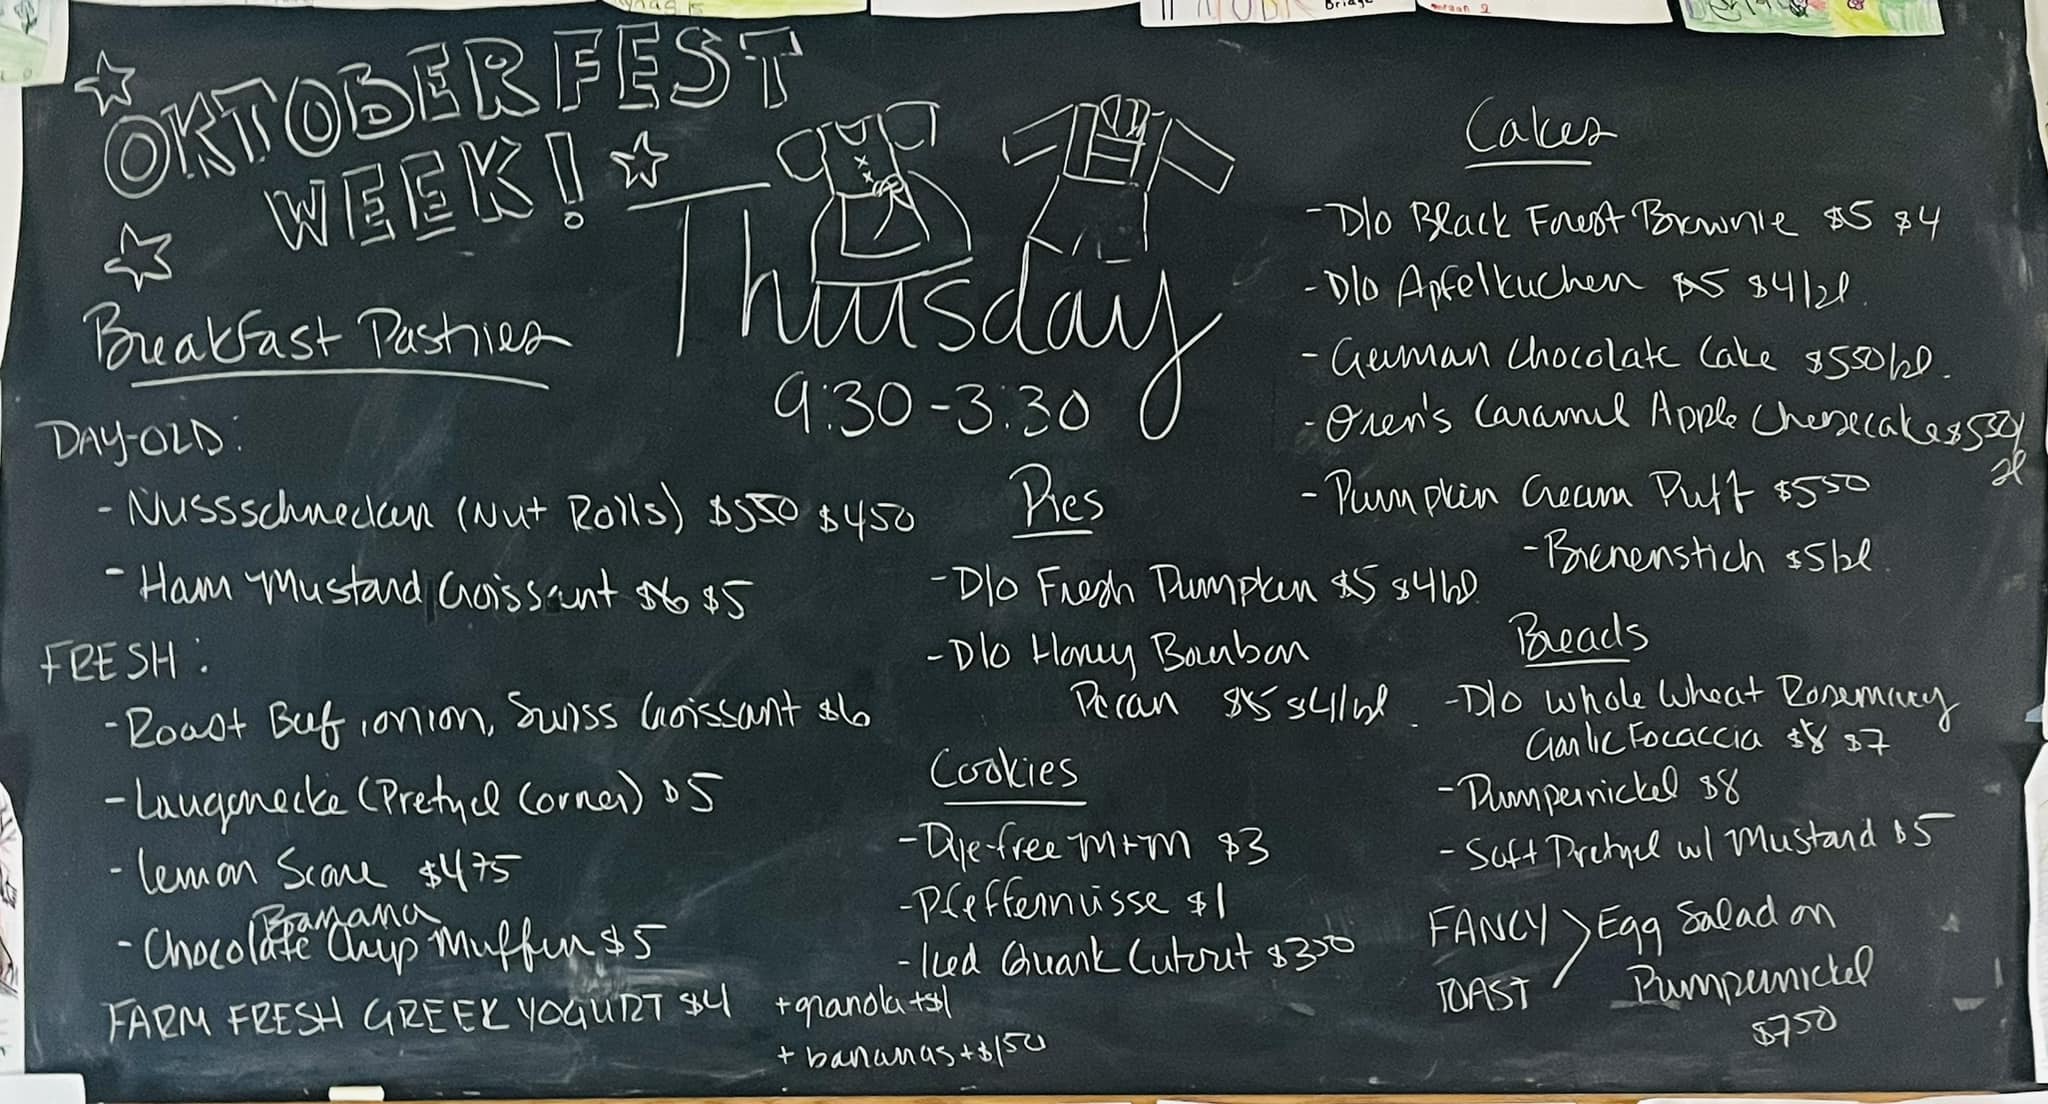 OKTOBERFEST
WEEK!
Thursday
9:30-3:30
Breakfast Pastries
DAY-OLD:
- Nussschnecken (Nut Rolls) $550 $450
- Ham Mustard Croissant $6 $5
FRESH:
- Roast Beef, onion, Swiss Croissant $6
- Laugenecke (Pretzel Corner) $5
- Lemon Scone $475
Banana
- Chocolate Chip Muffin $5
FARM FRESH GREEK YOGURT $4
+ granola +$1
+ bananas +$150
Pies
- D/o Fresh Pumpkin $5 $4/sl
- D/o Honey Bourbon
Pecan $5 $4/sl.
Cookies
- Dye-free M+M $3
- Pfeffernüsse $1
- Iced Quark Cutout $350
Cakes
- D/o Black Forest Brownie $5 $4
- D/o Apfelkuchen $5 $4/sl.
- German Chocolate Cake $550/sl.
- Oren's Caramel Apple Cheesecake $550/
sl
- Pumpkin Cream Puff $550
- Bienenstich $5/sl.
Breads
- D/o Whole Wheat Rosemary
Garlic Focaccia $8 $7
- Pumpernickel $8
- Soft Pretzel w/ Mustard $5
FANCY
TOAST
> Egg Salad on
Pumpernickel
$750